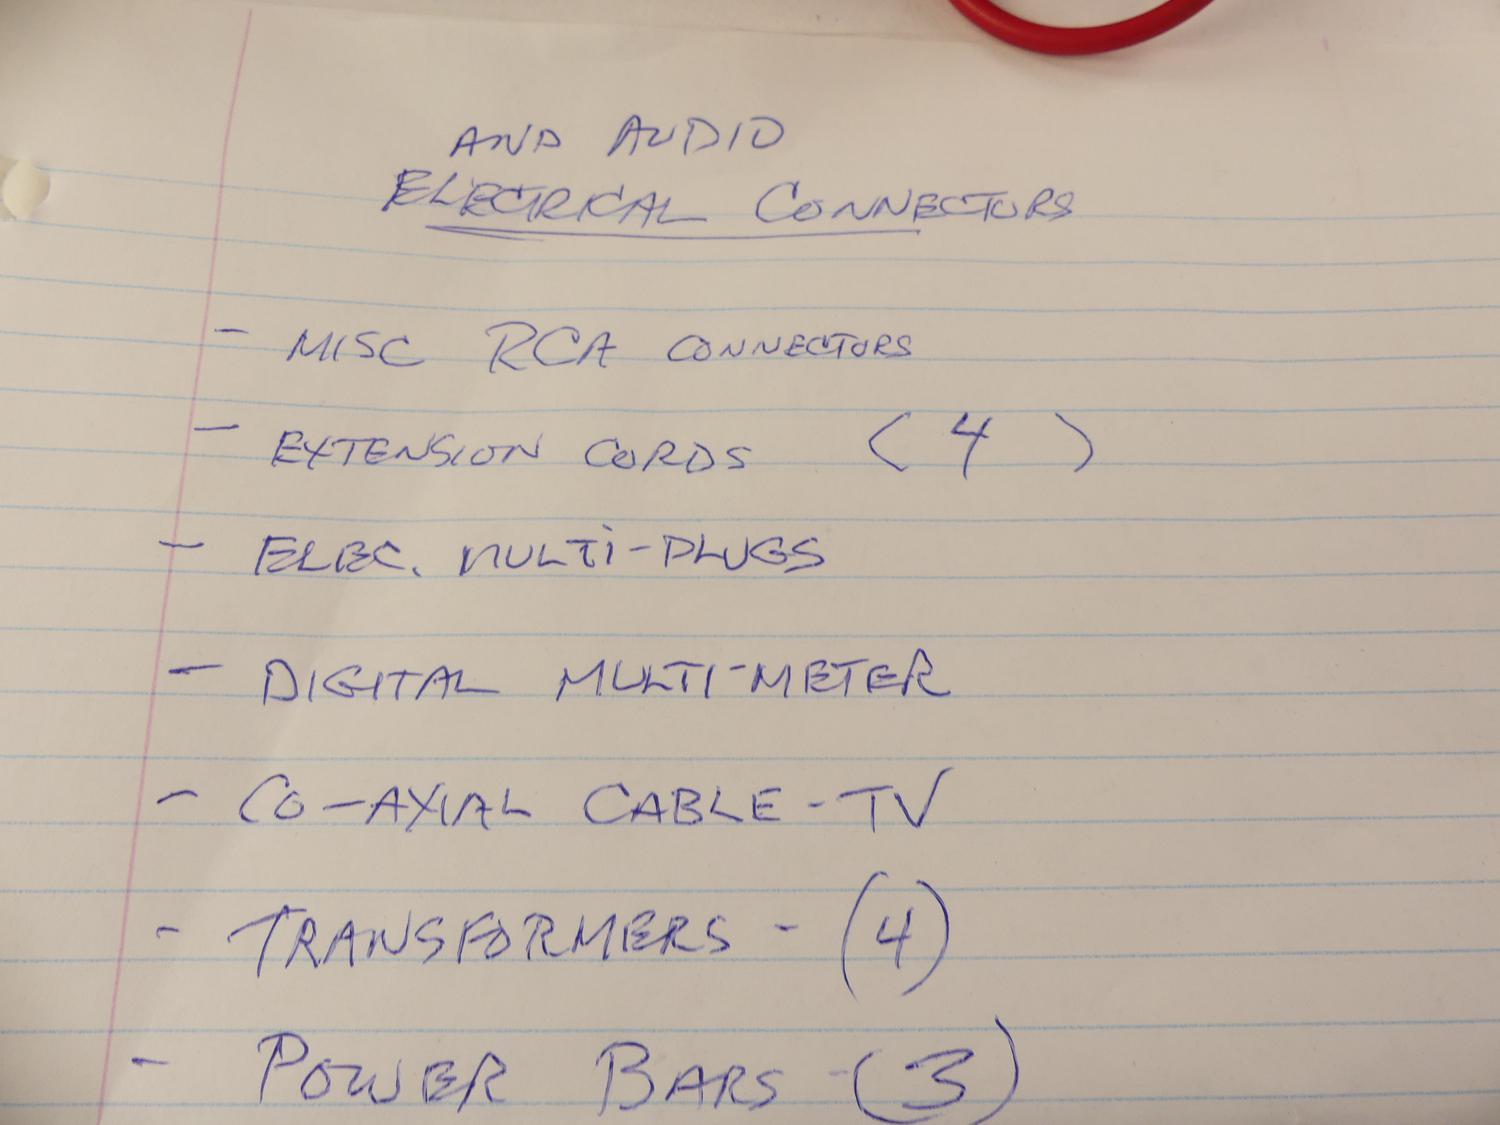 AND AUDIO
ELECTRICAL CONNECTORS
- MISC RCA CONNECTORS
- EXTENSION CORDS (4)
- ELEC. MULTi-PLUGS
- DIGITAL MULTI-METER
- CO-AXIAL CABLE-TV
- TRANSFORMERS - (4)
- POWER BARS - (3)